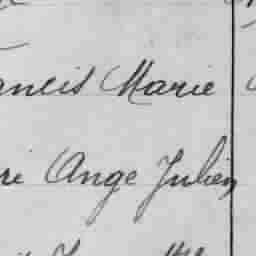 ancis Marie
ri Ange Julien